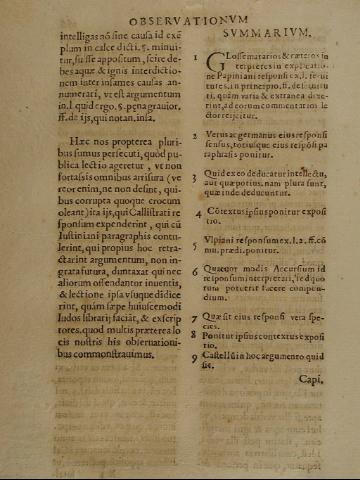 OBSERVATIONVM
intelligas nõ sine causa id exẽ
plum in calce dicti. §. minui-
tur, suisse appositum, scire de-
bes aquæ & ignis interdictio-
nem inter infames causas an-
numerari, vt est argumentum
in l. quid ergo, §. pena grauior.
ff. de ijs, qui notan. infa.
Hæc nos propterea pluri-
bus sumus persecuti, quòd pu-
blica lectio ageretur, vt non
fortassis omnibus arrisura (ve
reor enim, ne non desint, qui-
bus corrupta quoque crocum
oleant) ita ijs, qui Callistrati re
sponsum expenderint, qui cũ
Iustiniani paragraphis contu-
lerint, qui propius hoc retra-
ctarint argumentum, non in-
grata futura, duntaxat qui nec
aliorum offendantur inuentis,
& lectione ipsa vsuque didice
rint, quàm sæpe huiuscemodi
ludos librarij faciãt, & exscrip
tores. quod multis præterea lo
cis nostris his obseruationi-
bus commonstrauimus.
SVMMARIVM.
1 Glossematarios & cæteros in
terpretes in explicatio-
ne Papiniani responsi ex l. serui-
tutes. in principio. ff. de seruitu
ti. quàm varia & extranea dixe-
rint, ad eorum commentarios le
ctor reijcitur.
2 Verus ac germanus eius responsi
sensus, totiusque eius respõsi pa
raphrasis ponitur.
3 Quid ex eo deducatur intellectu,
aut quæ potius. nam plura sunt,
quæ inde deducuntur.
4 Cõtextus ipsius ponitur exposi
tio.
5 Vlpiani responsum ex l. 2. ff. cõ
mu. prædi. ponitur.
6 Quæcun modis Accursium id
responsum interpretari, sed quo
tum poterit facere compen-
dium.
7 Quæsit eius responsi vera spe-
cies.
8 Ponitur ipsius contextus exposi
tio.
9 Castellũ in hoc argumento quid
sit.
Capi.